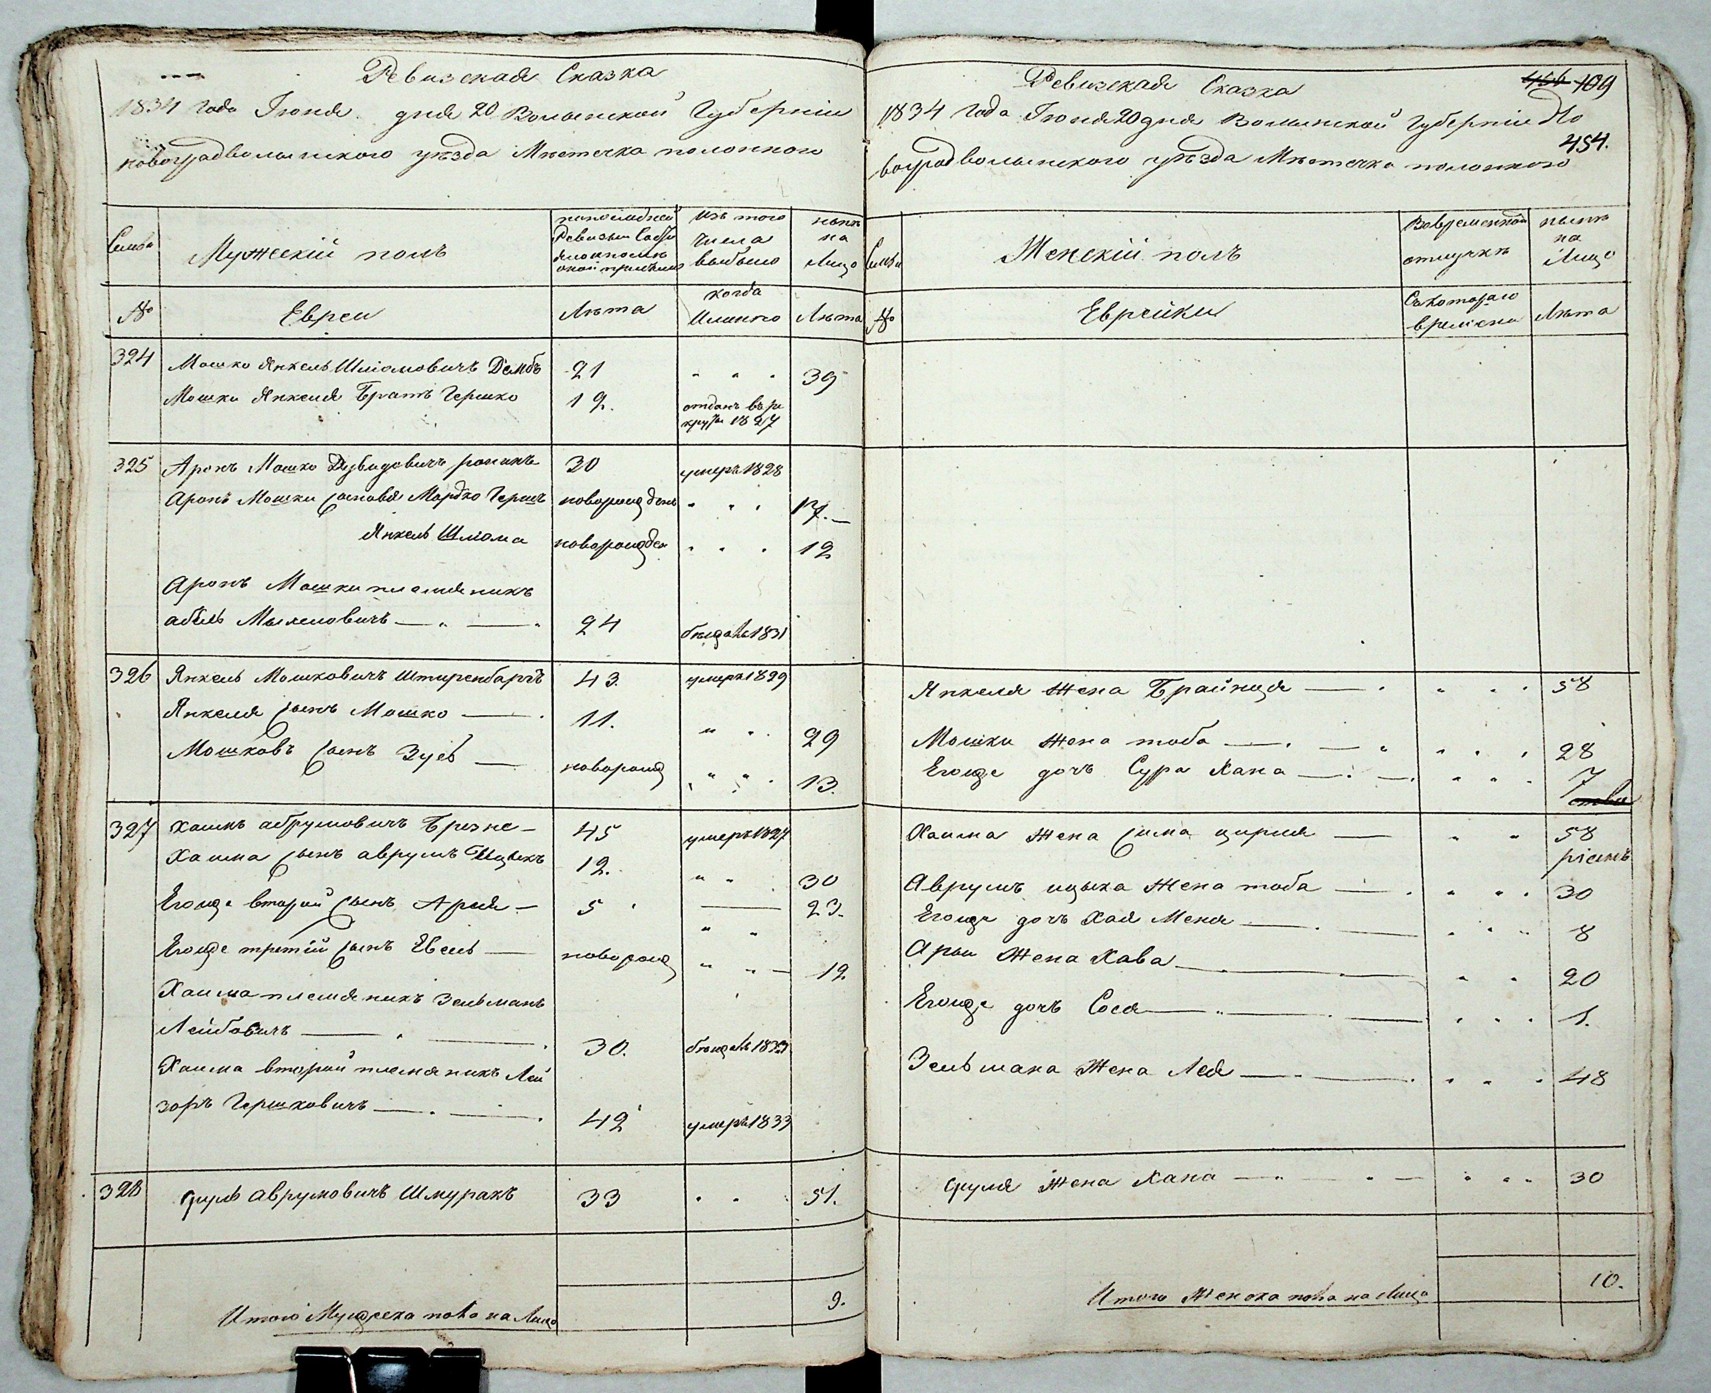 Ревизская Сказка
1834 года Июня дня 20 Волынской Губерніи
новоградволынского уѣзда Мѣстечка полонного
Семьи
Мужескій полъ
по последней Ревизіи
Изъ того числа выбыло
ныне на Лицо
№
Евреи
Лѣта
когда Именно
Лѣта
324
Мошко Янкель Шліомовичъ Дембъ 21 " " " 39
Мошки Янкеля Братъ Гершко 19. отданъ въ ре
круты 1827
325 Аронъ Мошко Дувидовичъ 30 умеръ 1828
Аронъ Мошки сыновья Мордко Гершъ новорожден " " " 17.
Янкель Шліома новорожден " " " 12
Аронъ Мошки племяникъ
абель 24 1831
326 Янкель Мошковичъ Штиренбаргъ 43. умеръ 1829
Янкеля сынъ Мошко 11. " " 29
Мошковъ сынъ Зусь новорожд " " " 13.
327 Хаимъ абрумовичъ Брезне 45 умеръ 1827
Хаима сынъ аврумъ Ицыкъ 12. " " 30
Егожъ второй сынъ Арья 5 " " 23.
Егожде третій сынъ Евель новорожд " " 12.
Хаима племяникъ Зельманъ
Лейбовичъ 30.
Хаима второй племяникъ Лей
зоръ Гершковичъ 42 умеръ 1833
328 Сруль аврумовичъ Шмуракъ 33 " " 51.
Итого Мужеска пола на Лицо 9.
Ревизская Сказка
109
1834 года Июня 20 дня Волынской Губерніи Но
454.
воградволынского уѣзда Мѣстечка полонного
Семьи
Женскій полъ
Вовременной отлучкѣ
ныне на Лицо
№
Еврейки
Скотораго времени
Лѣта
Янкеля Жена Брайнця " " " 58
Мошки Жена тоба " " " 28
Егожде дочъ Сура Хана " " " 7
Хаима Жена Сима цирля " " 58
Аврумъ ицыка Жена тоба " " " 30
Егожде дочъ Хая Меня " " " 8
Арьи Жена Хава " " 20
Егожде дочъ Сося " " " 1.
Зельмана Жена Лея " " " 48
Сруля Жена Хана " " " 30
Итого Женска пола на лицо 10.